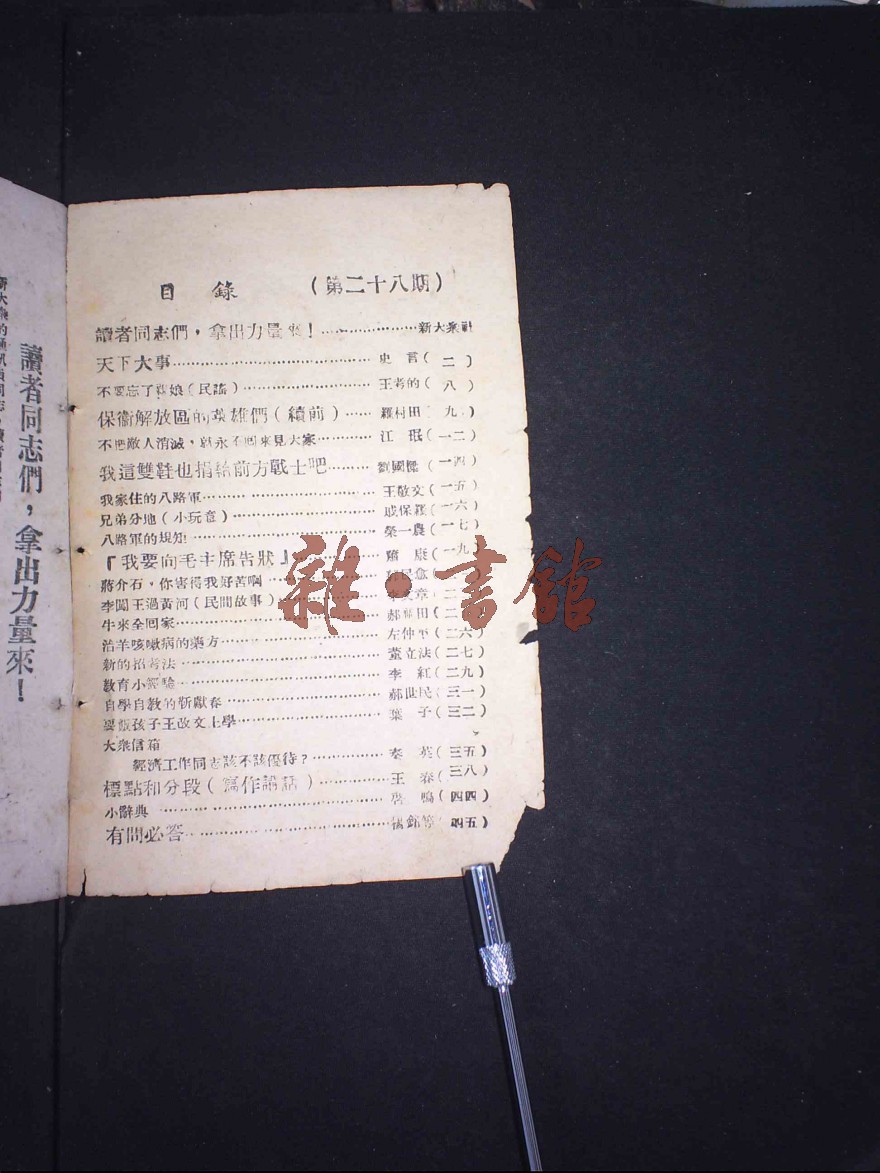 目錄 (第二十八期)
讀者同志們，拿出力量來！…………新大衆社
天下大事…………史言(二)
不要忘了親娘(民謠)…………王考的(八)
保衞解放區的英雄們(續前)……羅村田(九)
不把敵人消滅，以永不回來見大家…………江珉(一二)
我這雙鞋也捐給前方戰士吧…………劉國傑(一四)
我家住的八路軍…………王敬文(一五)
兄弟分地(小玩意)…………成保羅(一六)
八路軍的規矩…………榮一農(一七)
『我要向毛主席告狀』…………康(一九)
蔣介石，你害得我好苦啊…………民(二
李闖王過黃河(民間故事)…………章(二
牛來全回家…………郝田(二
治羊咳嗽病的藥方…………左仲平(二六)
新的招考法…………董立法(二七)
教育小經驗…………李紅(二九)
自學自教的靳獻春…………郝世民(三一)
要飯孩子王改文上學…………葉子(三二)
大衆信箱
經濟工作同志該不該優待？…………秦英(三五)
標點和分段(寫作講話)…………王春(三八)
小辭典…………鳴(四四)
有問必答…………等(四五)
讀者同志們，拿出力量來！
雜·書館